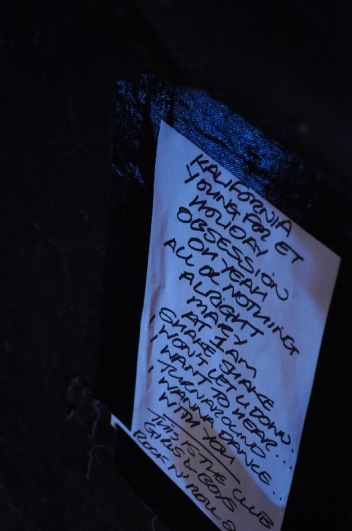 KALIFORNIA
YOUNG FOR ET
HOLIDAY
OBSESSION
OH YEAH
ALL OR NOTHING
ALRIGHT
MARY
AT 1 AM
SHAKE SHAKE
WON'T LET U DOWN
I WANT TO HEAR...
TURNAROUND
I WANNA DANCE
WITH YOU
THIS IS THE CLUB
GIRLS & BOYS
ROCK N' ROLL